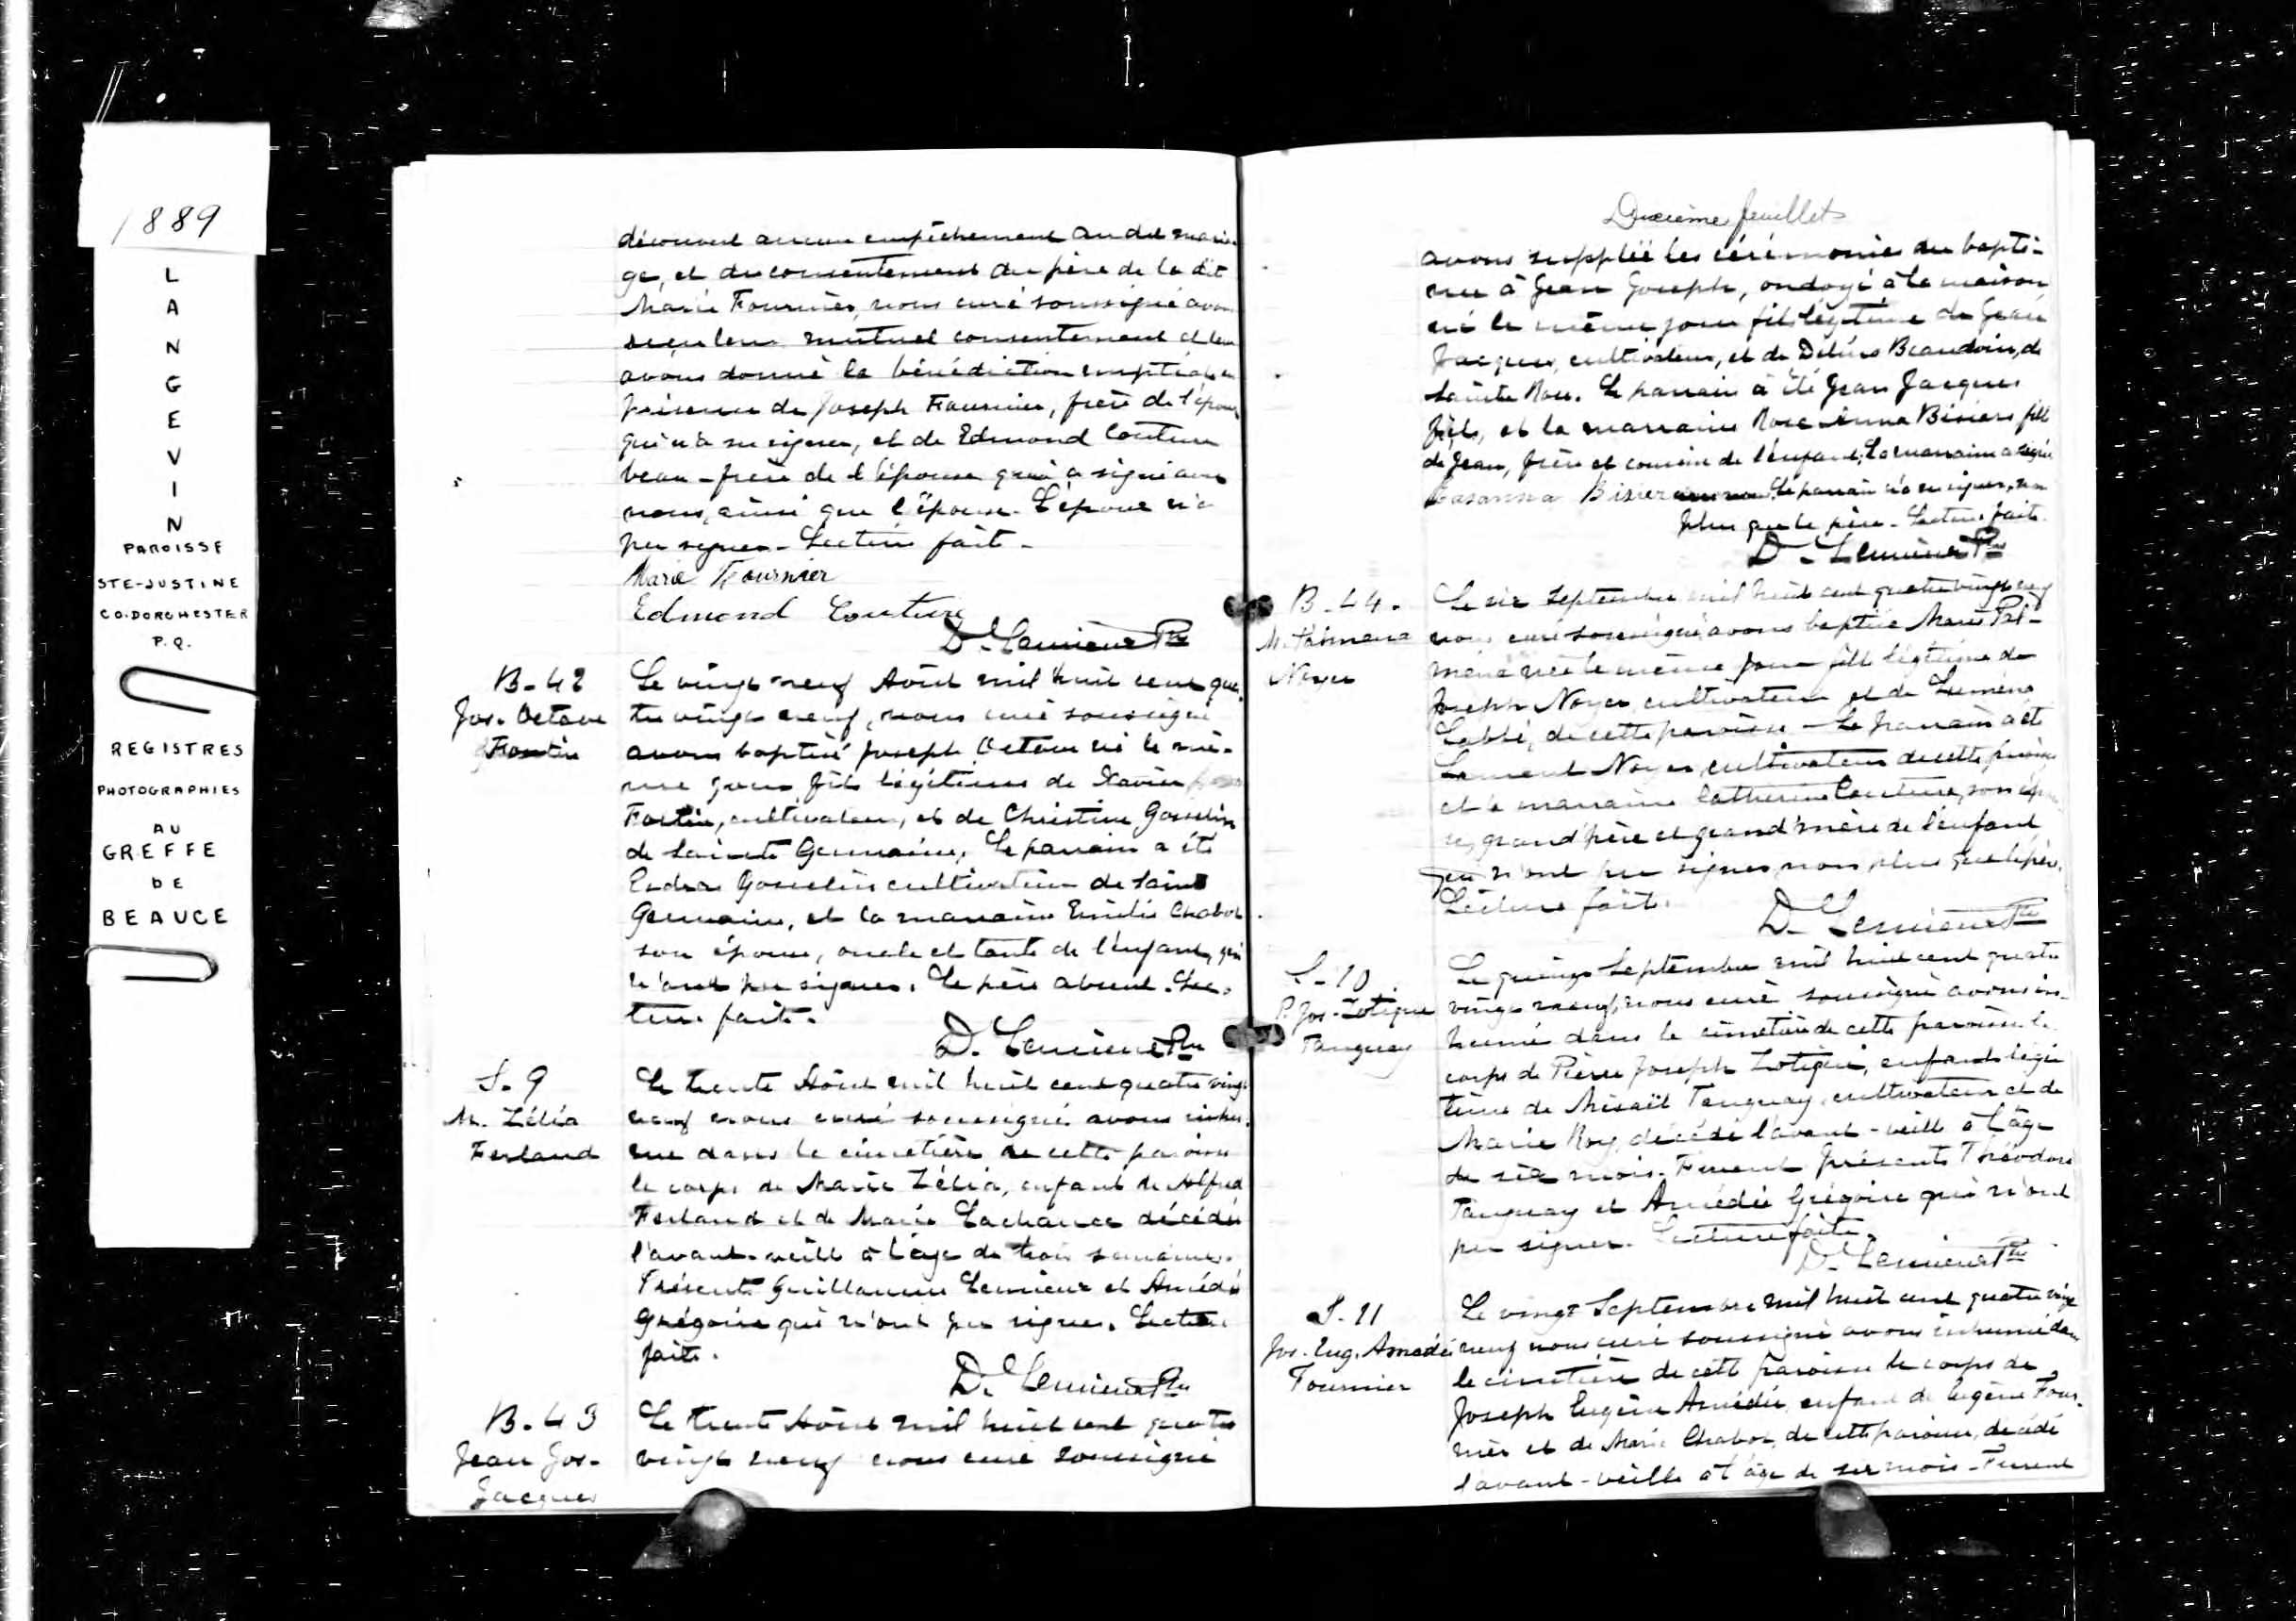 1889
L
A
N
G
E
V
I
N
PAROISSE
STE-JUSTINE
CO. DORCHESTER
P.Q.
REGISTRES
PHOTOGRAPHIES
AU
GREFFE
DE
BEAUCE
découvert aucun empêchement au dit maria-
ge, et du consentement du père de la dit
Marie Fournier, nous curé soussigné avons
reçu leur mutuel consentement et leur
avons donné la bénédiction nuptiale en
présence de Joseph Fournier, frère de l'époux
qui n'a su signer, et de Edmond Couture
beau-frère de l'épouse qui a signé avec
nous, ainsi que l'épouse. L'époux n'a
pu signer - Lecture faite -
Marie Fournier
Edmond Couture
D. Lemieux Ptre
B-42
Jos. Octave
Fortin
Le vingt neuf Août mil huit cent qua-
tre vingt neuf, nous curé soussigné
avons baptisé Joseph Octave né le mê-
me jour fils légitime de Xavier
Fortin, cultivateur, et de Christine Gosselin
de Sainte Germaine. Le parrain a été
Gosselin cultivateur de Sainte
Germaine, et la marraine Emélie Chabot
son épouse, oncle et tante de l'enfant, qui
n'ont pu signer. Le père absent. Lec-
ture faite.
D. Lemieux Ptre
S-9
M. Zélia
Ferland
Le trente Août mil huit cent quatre vingt
neuf nous curé soussigné avons inhu-
mé dans le cimetière de cette paroisse
le corps de Marie Zélia, enfant de Alfred
Ferland et de Marie Lachance décédée
l'avant-veille à l'âge de trois semaines.
Présents Guillaume Lemieux et Amédé
Grégoire qui n'ont pu signer. Lecture
faite.
D. Lemieux Ptre
B-43
Jean Jos.
Jacques
Le trente Août mil huit cent quatre
vingt neuf nous curé soussigné
Duxième feuillet
avons supplée les cérémonies du baptê-
me à Jean Joseph, ondoyé à la maison
né le même jour fils légitime de Jean
Jacques, cultivateur, et de Délina Beaudoin, de
Sainte Rose. Le parrain a été Jean Jacques
fils, et la marraine Rose-Anna Bisier fille
de Jean, frère et cousine de l'enfant. La marraine a signé
Rosanna Bisier avec nous. Le parrain n'a su signer, non
plus que le père - Lecture faite.
D. Lemieux Ptre
B-44.
M. Palmena
Noyer
Le six Septembre mil huit cent quatre vingt neuf
nous curé soussigné avons baptisé Marie Pal-
mena née le même jour fille légitime de
Joseph Noyer cultivateur et de Lumena
Labbé, de cette paroisse - Le parrain a été
Laurent Noyer, cultivateur de cette paroisse
et la marraine Catherine Couture, son épou-
se, grand'père et grand'mère de l'enfant
qui n'ont pu signer, non plus que le père.
Lecture faite.
D. Lemieux Ptre
S-10
P. Jos. Zotique
Tanguay
Le quinze Septembre mil huit cent quatre
vingt neuf, nous curé soussigné avons in-
humé dans le cimetière de cette paroisse le
corps de Pierre Joseph Zotique, enfant légi
time de Misaël Tanguay, cultivateur et de
Marie Roy, décédé l'avant-veille à l'âge
de six mois. Furent présents Théodore
Tanguay et Amédée Grégoire qui n'ont
pu signer. Lecture faite.
D. Lemieux Ptre
S-11
Jos. Eug. Amédé
Fournier
Le vingt Septembre mil huit cent quatre vingt
neuf nous curé soussigné avons inhumé dans
le cimetière de cette paroisse le corps de
Joseph Eugène Amédée, enfant de Eugène Four-
nier et de Marie Chabot, de cette paroisse, décédé
l'avant-veille à l'âge de six mois - Furent